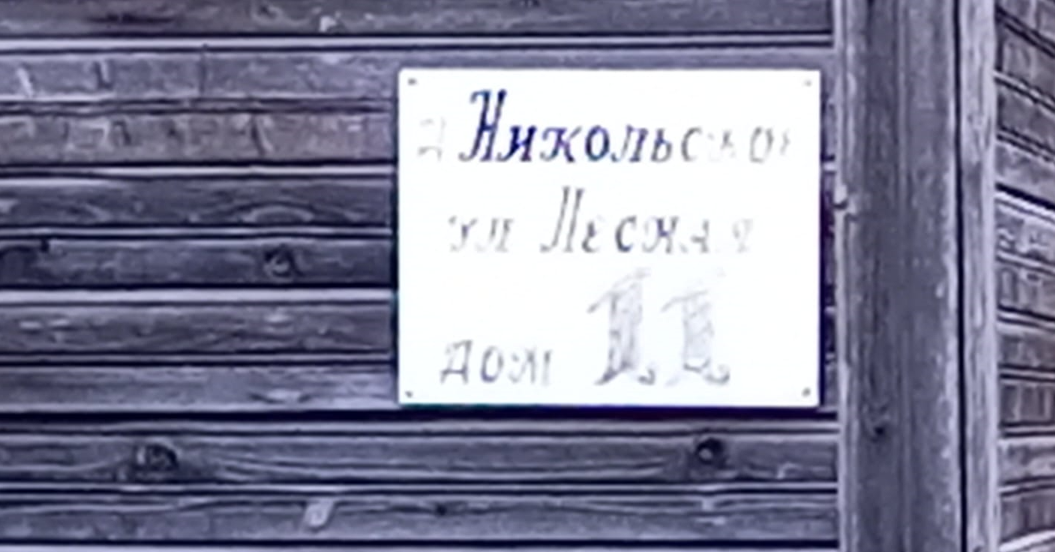 д Никольское
ул Лесная
дом 11